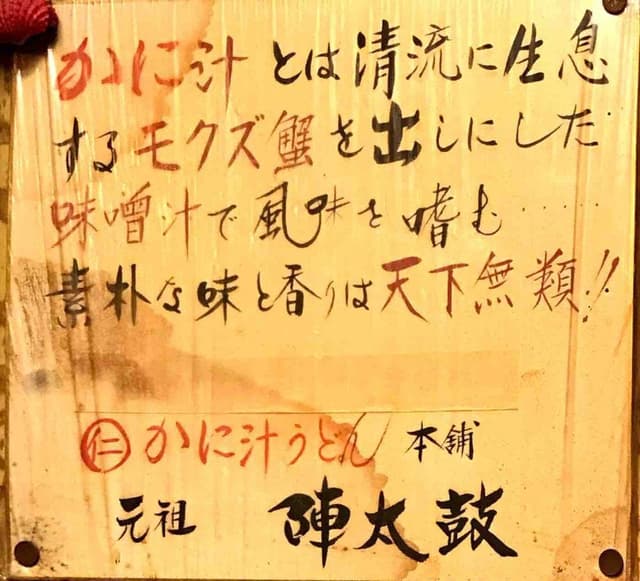 かに汁とは清流に生息
するモクズ蟹を出しにした
味噌汁で風味を嗜む……
素朴な味と香りは天下無類!!
仁 かに汁うどん 本舗
元祖 陣太鼓